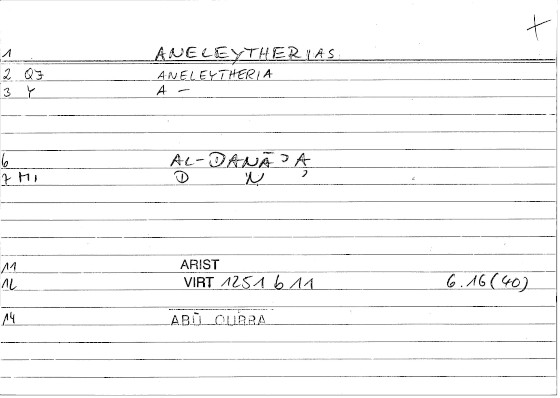 +
1 ANELEYTHERIAS
2 QJ ANELEYTHERIA
3 Y A -
6 AL-DANĀʾA
7 MI D N ʾ
11 ARIST
12 VIRT 1251 b 11 6.16(40)
14 ABŪ QURRA